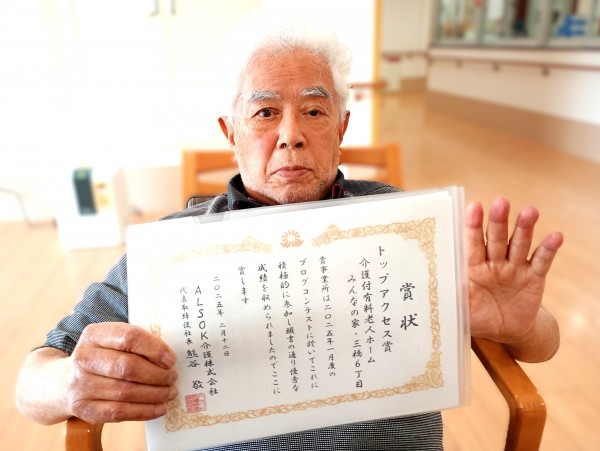 賞状
トップアクセス賞
介護付有料老人ホーム
みんなの家・三橋6丁目
貴事業所は二〇二五年一月度の
ブログコンテストに於いてこれに
積極的に参加し頭書の通り優秀な
成績を収められましたのでここに
賞します
二〇二五年 二月十八日
ALSOK介護株式会社
代表取締役社長 熊谷 敬